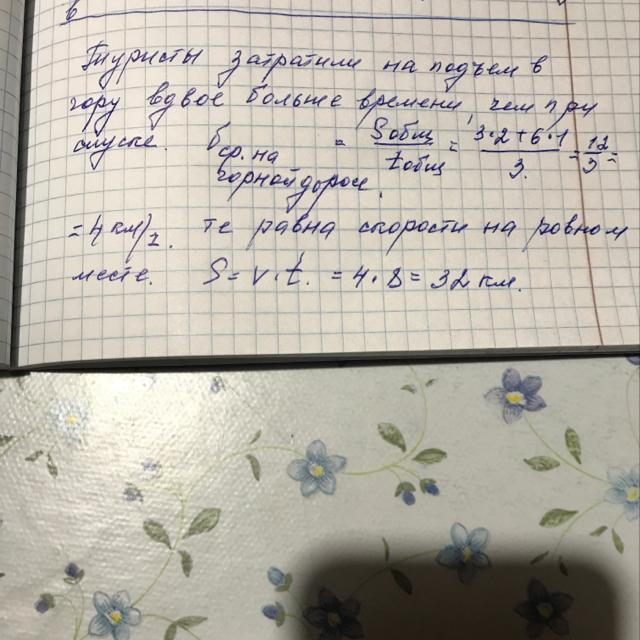 в
Туристы затратили на подъем в
гору вдвое больше времени, чем при
спуске. Vср.на горной дороге = Sобщ/tобщ = 3·2+6·1/3 = 12/3 =
= 4 км/ч. те равна скорости на ровном
месте. S = v·t. = 4·8 = 32 км.